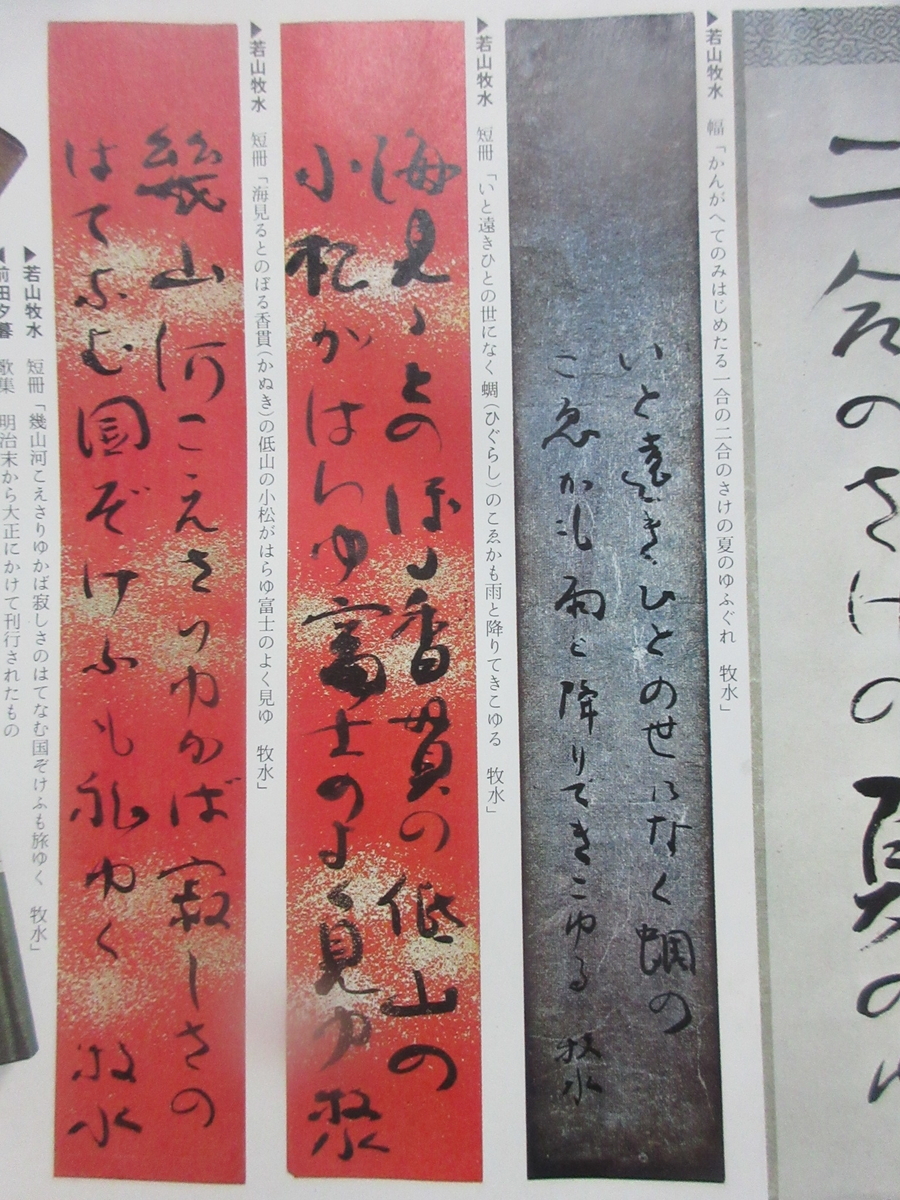 二合のさけの夏のゆ
▶若山牧水　幅「かんがへてのみはじめたる一合の二合のさけの夏のゆふぐれ　牧水」
いと遠きひとの世になく蜩の
こゑかも雨と降りてきこゆる　牧水
▶若山牧水　短冊「いと遠きひとの世になく蜩(ひぐらし)のこゑかも雨と降りてきこゆる　牧水」
海見るとのぼる香貫の低山の
小松がはらゆ富士のよく見ゆ　牧水
▶若山牧水　短冊「海見るとのぼる香貫(かぬき)の低山の小松がはらゆ富士のよく見ゆ　牧水」
幾山河こえさりゆかば寂しさの
はてなむ国ぞけふも旅ゆく　牧水
▶若山牧水　短冊「幾山河こえさりゆかば寂しさのはてなむ国ぞけふも旅ゆく　牧水」
前田夕暮　歌集　明治末から大正にかけて刊行されたもの